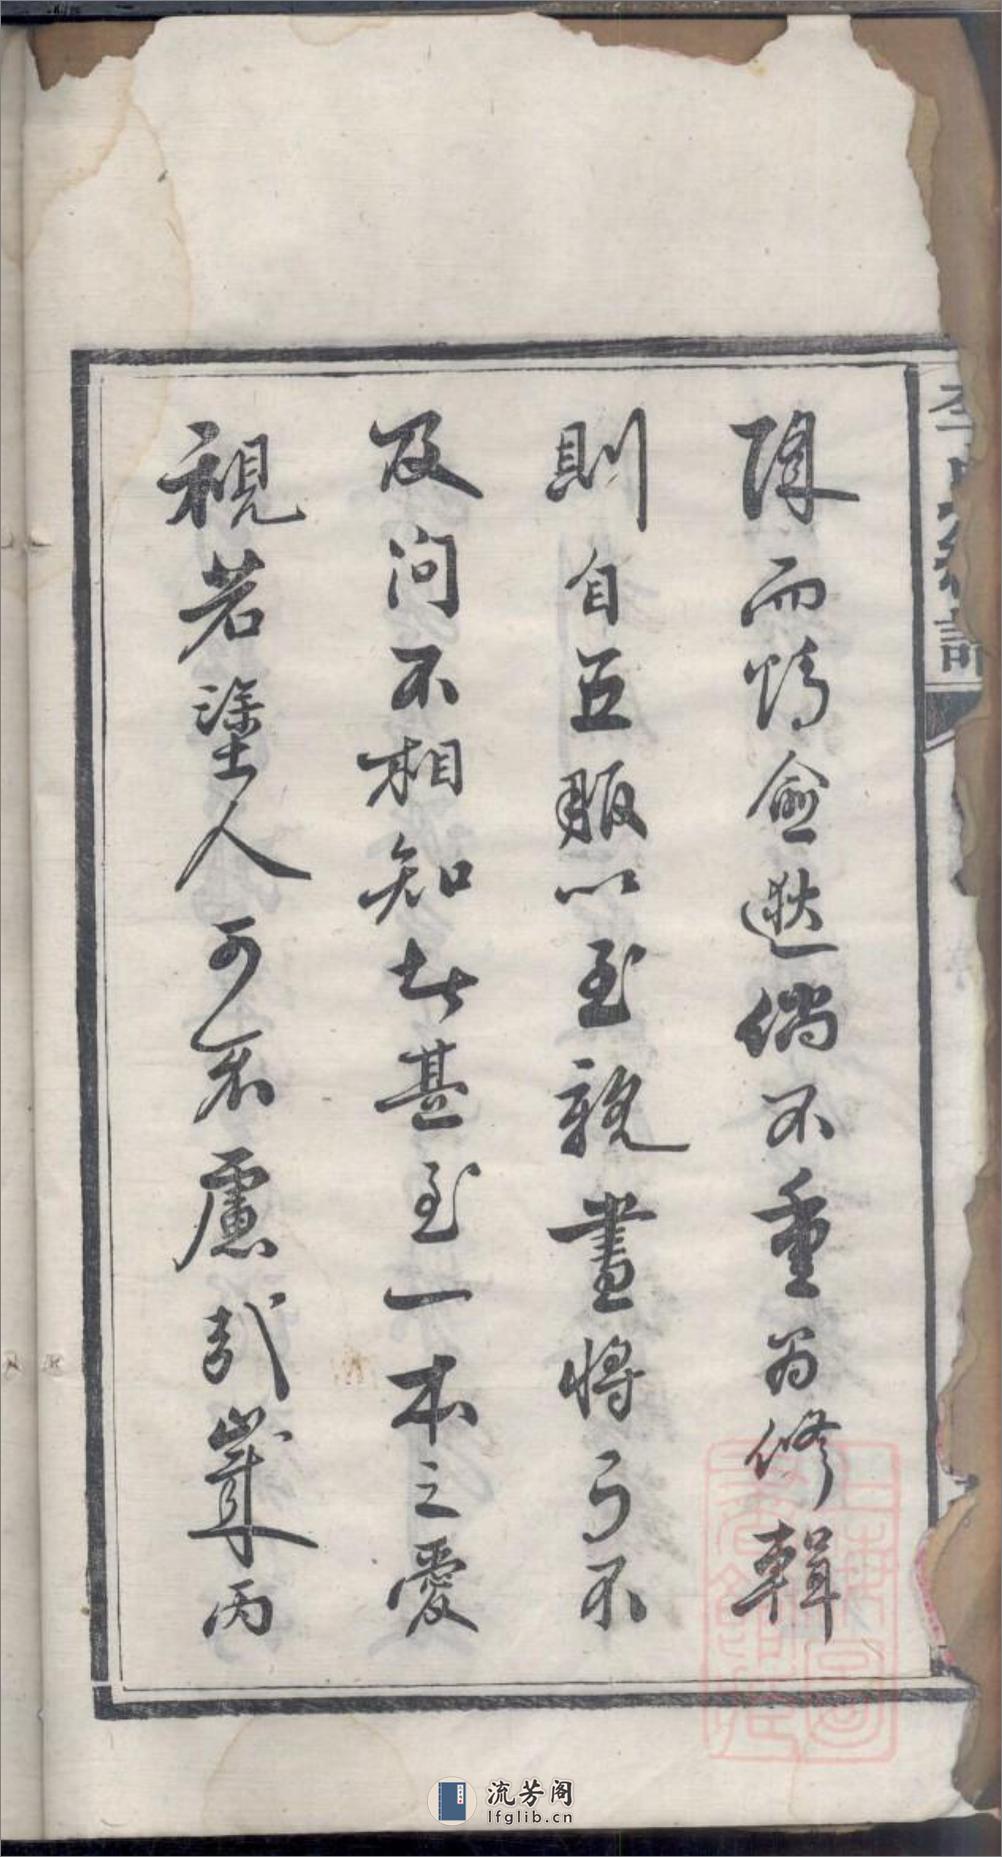 降而情愈逖倘不重為修輯
則自五服以至親盡將有不
及問不相知者甚至一本之愛
視若塗人可不慮哉歲丙
流芳阁
lfglib.cn